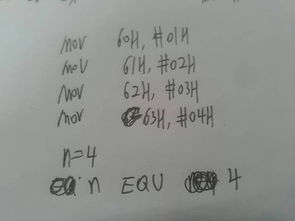 mov 60H, #01H
mov 61H, #02H
mov 62H, #03H
mov 63H, #04H
n=4
n EQU 4